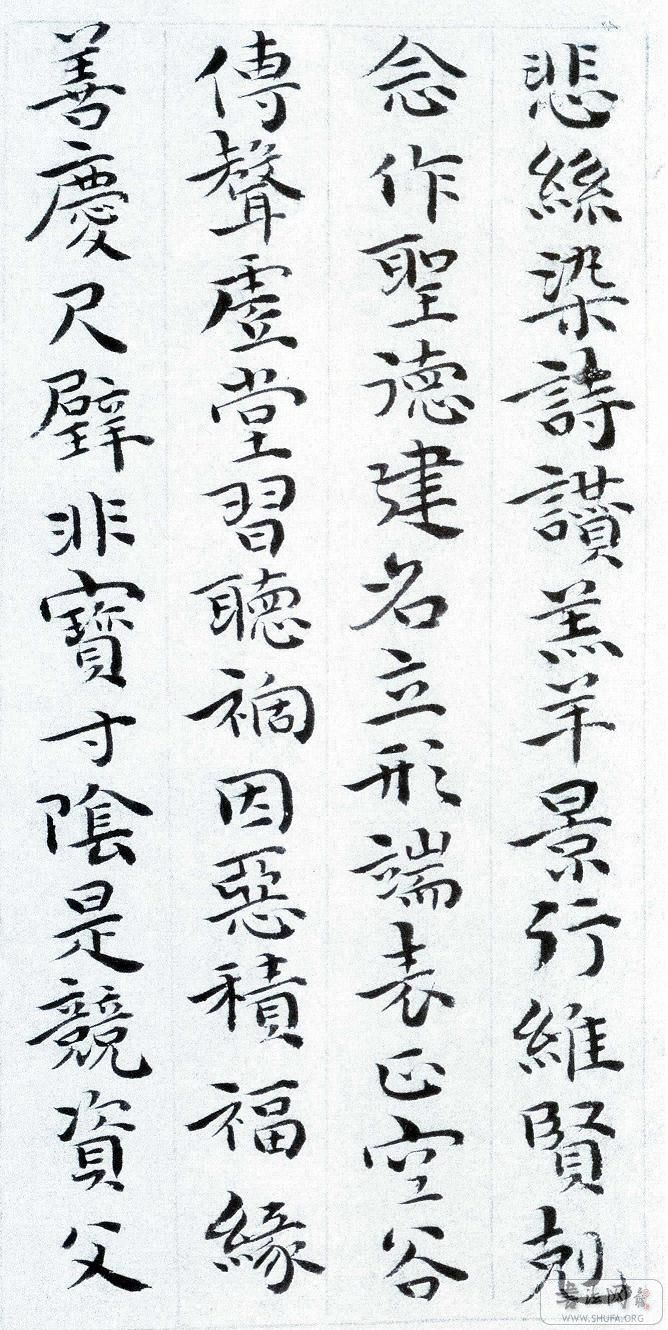 悲絲染詩讃羔羊景行維賢剋
念作聖德建名立形端表正空谷
傳聲虛堂習聽禍因惡積福緣
善慶尺璧非寶寸陰是競資父
书法网
WWW.SHUFA.ORG